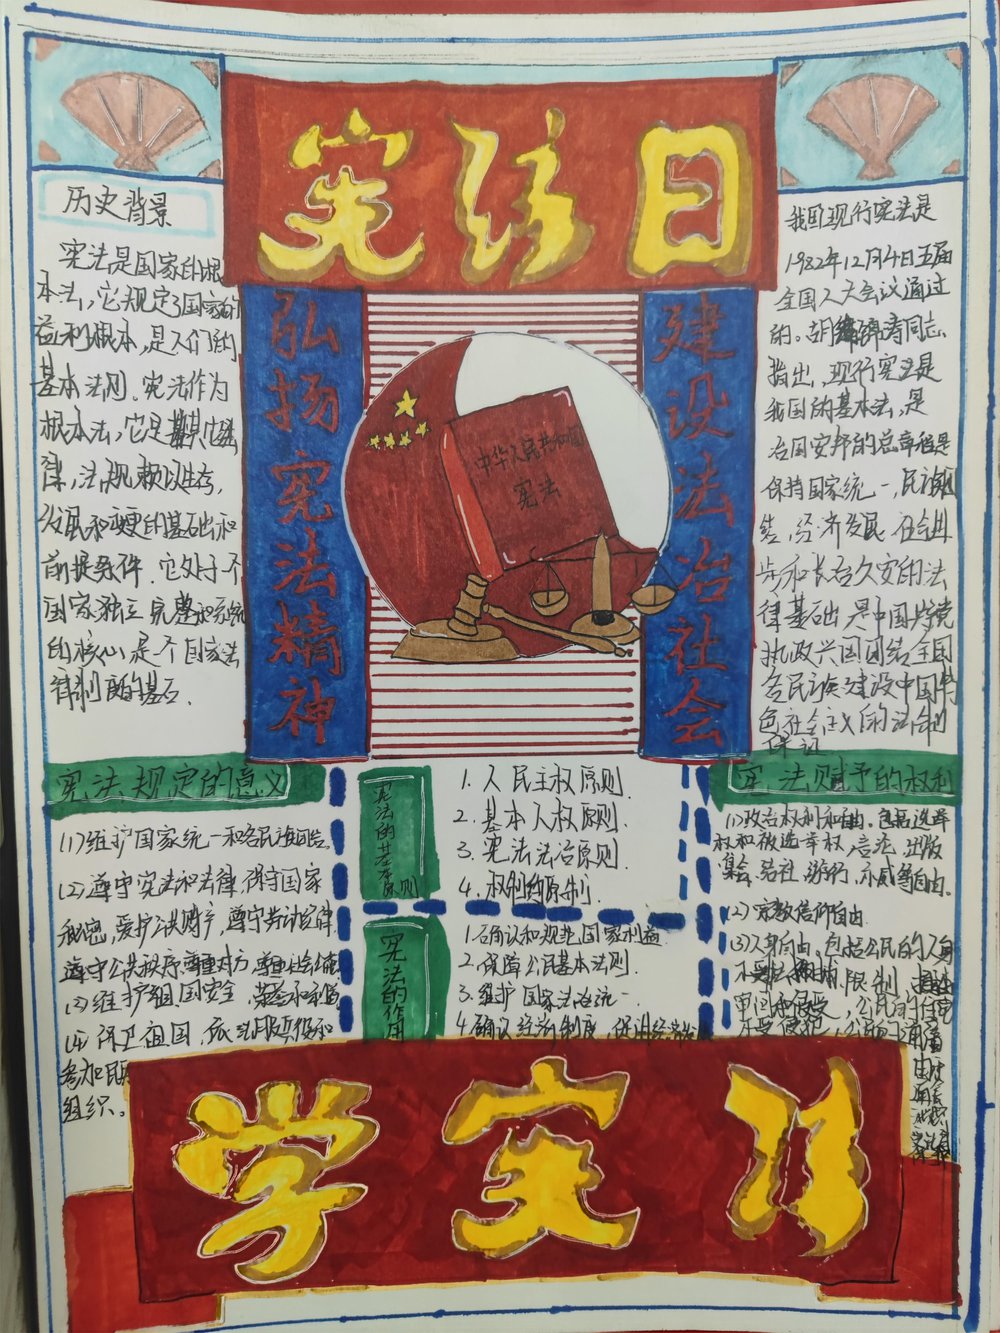 宪法日
弘扬宪法精神
建设法治社会
中华人民共和国
宪法
历史背景
宪法是国家的根
本法，它规定了国家的
益利根本，是人们的
基本法则。宪法作为
根本法，它是其他法
律，法规赖以生存，
发展和变更的基础和
前提条件。它处于个
国家独立完整和系统
的核心，是个国家法
律制度的基石．
我国现行宪法是
1982年12月4日五届
全国人大会议通过
的。胡锦涛同志
指出，现行宪法是
我国的基本法，是
治国安邦的总章程是
保持国家统一，民族团
结，经济发展，社会进
步和长治久安的法
律基础，是中国共产党
执政兴国团结全国
各民族建设中国特
色社会主义的法制
保证
宪法规定的意义
(1)维护国家统一和各民族团结。
(2)遵守宪法和法律，保守国家
秘密，爱护公共财产，遵守劳动纪律，
遵守公共秩序，尊重
(3)维护祖国安全，荣誉和利益
(4)保卫祖国，依法服兵役和
参加民
组织。
宪法的基本原则
1. 人民主权原则．
2. 基本人权原则．
3. 宪法法治原则．
4. 权利的原制
宪法的作用
1.确认和规范国家利益
2.保障公民基本法则．
3.维护国家法治统一．
4.确认经济制度，促进经济发
宪法赋予的权利
(1)政治权利和自由。包括选举
权和被选举权，言论，出版
集会，结社，游行，示威等自由。
(2)宗教信仰自由．
(3)人身自由，包括公民的人身
学宪法